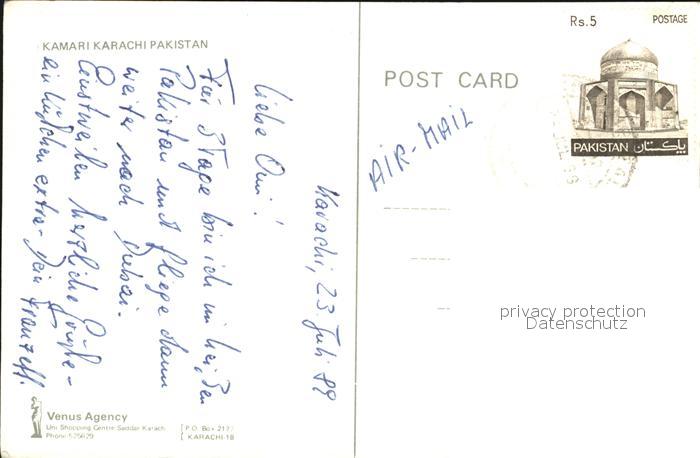 KAMARI KARACHI PAKISTAN
Karachi, 23. Juli 89
Liebe Omi!
Für 3 Tage bin ich im heißen
Pakistan und fliege dann
weiter nach Dubai.
Einstweilen herzliche Grüße -
ein Küßchen extra - Dein
Venus Agency
Uni Shopping Centre Saddar Karachi
Phone 525629
P.O. Box
KARACHI-18
POST CARD
AIR-MAIL
Rs.5 POSTAGE
PAKISTAN پاکستان
privacy protection
Datenschutz